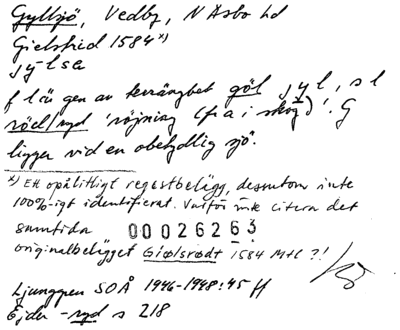 Gyllsjö, Vedby, N Åsbo hd
Gielsfrid 1584 x)
jy-lsa
f l är gen av terrängbet göl jyl, s l
röd/ryd 'röjning (fr a i skog)'. G
ligger vid en obetydlig sjö.
x) Ett opålitligt regestbelägg, dessutom inte
100%-igt identifierat. Varför inte citera det
samtida 00026263
originalbelägget Giølsrødt 1584 M+L ?!
Ljunggren SOÅ 1946-1948:45 ff
Ejder -ryd s 218